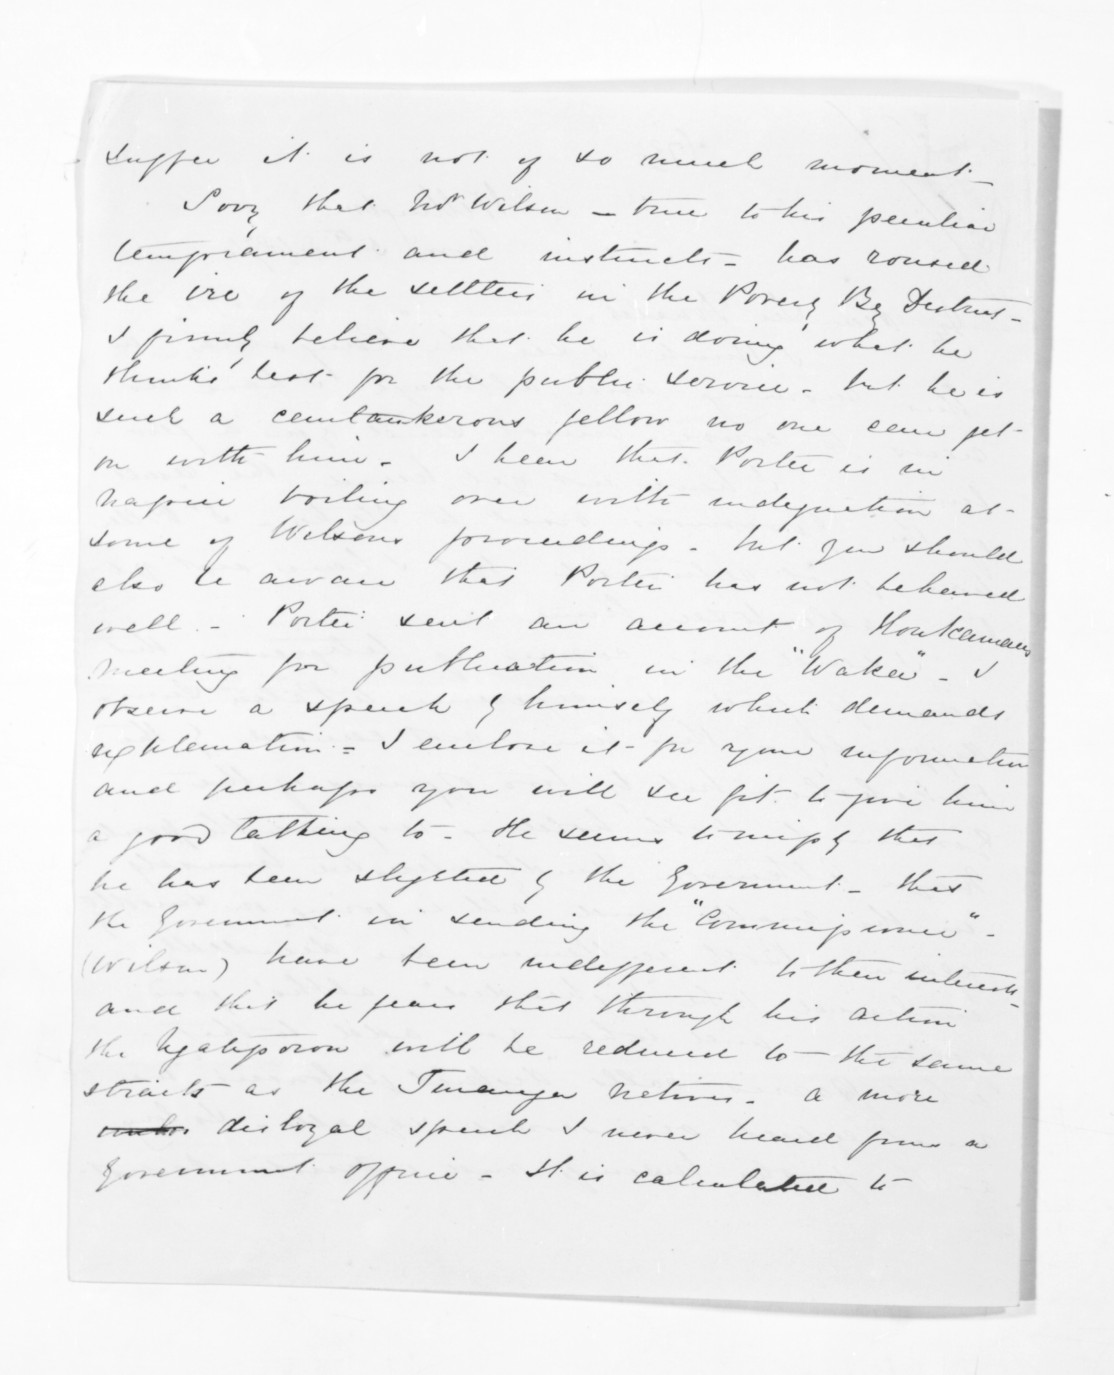 suffer it is not of so much moment –
Sorry that Mr Wilson – true to his peculiar
temprament and instincts – has roused
the ire of the settlers in the Poverty Bay District –
I firmly believe that he is doing what he
thinks best for the public service – but he is
such a cantankerous fellow no one can get
on with him – I hear that Porter is in
Napier boiling over with indignation at
some of Wilsons proceedings – but you should
also be aware that Porter has not behaved
well – Porter sent an account of Houkamaus
meeting for publication in the "Waka" – I
observe a speech by himself which demands
explanation – I enclose it for your information
and perhaps you will see fit to give him
a good talking to – He seems to imply that
he has been slighted by the Government – that
the Government in sending the "Commissioner" –
(Wilson) have been indifferent to their interests –
and that he fears that through his action
the Ngatiporou will be reduced to the same
straits as the Turanga natives – a more
disloyal speech I never heard from a
Government officer – It is calculated to